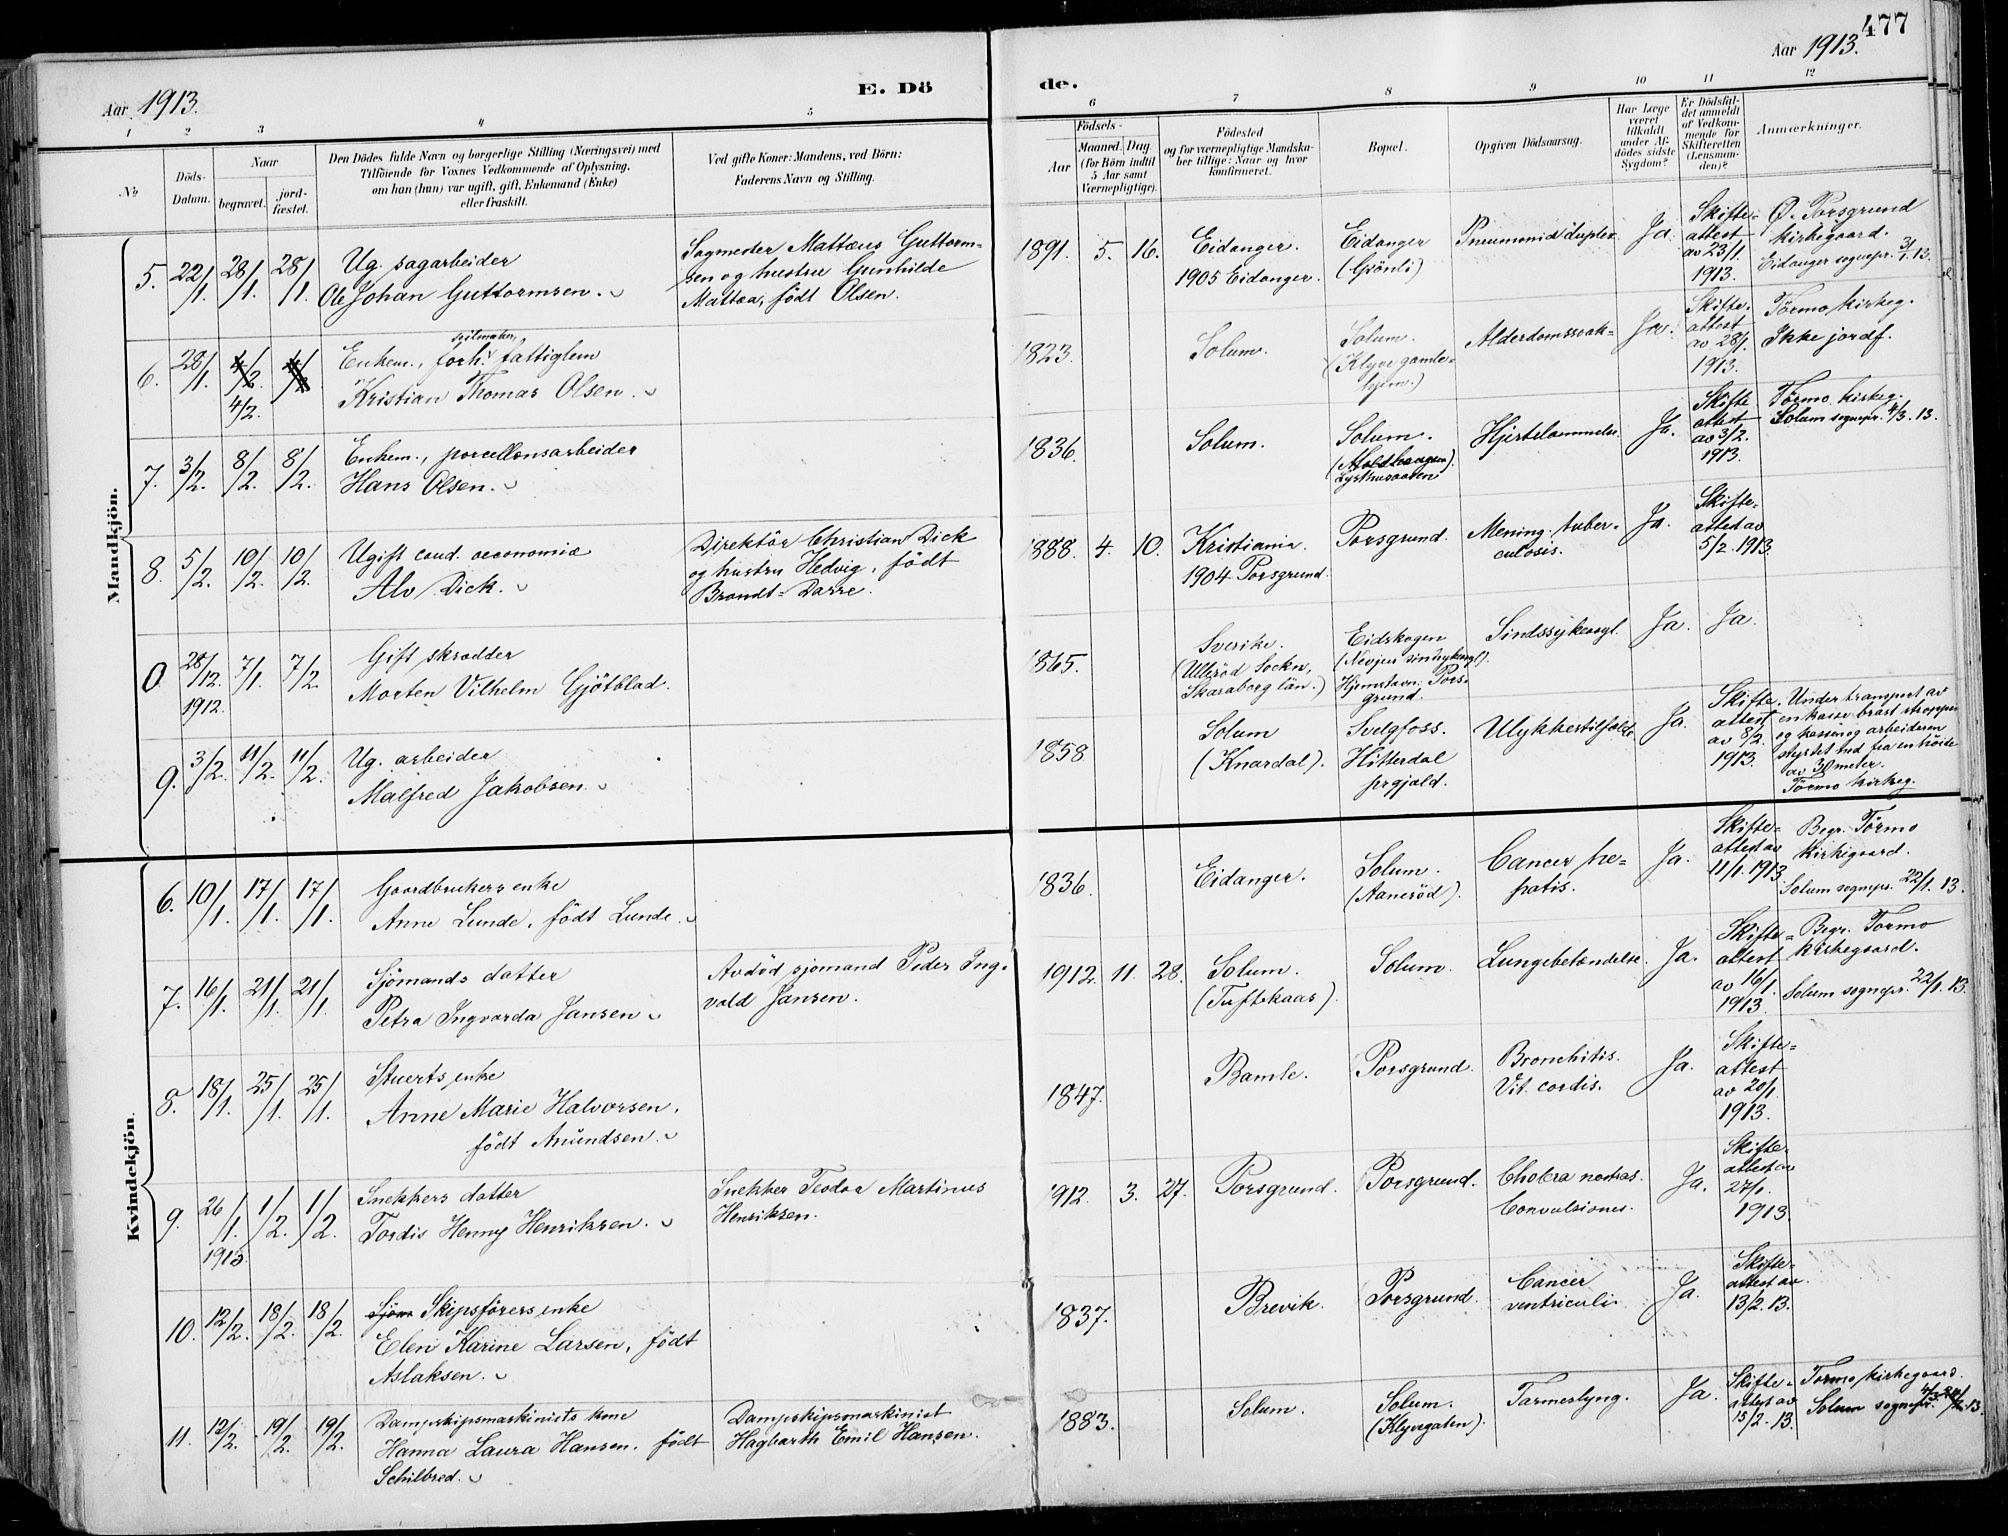 477
Aar 1913.
E. Dö
de.
Aar 1913.
1 2 3 4 5
6 7 8 9 10 11 12
No
Döds-
Datum.
Naar
begravet.
jord-
fæstet.
Den Dödes fulde Navn og borgerlige Stilling (Næringsvei) med
Tilföiende for Voxnes Vedkommende af Oplysning,
om han (hun) var ugift, gift, Enkemand (Enke)
eller fraskilt.
Ved gifte Koner: Mandens, ved Börn:
Faderens Navn og Stilling.
Födsels-
Aar
Maaned. Dag.
(for Börn indtil
5 Aar samt
Værnepligtige).
Födested
og for værnepligtige Mandska-
ber tillige: Naar og hvor
konfirmeret.
Bopæl.
Opgiven Dödsaarsag.
Har Læge
været
tilkaldt
under Af-
dödes sidste
Sygdom?
Er Dödsfal-
det anmeldt
af Vedkom-
mende for
Skifteretten
(Lensman-
den)?
Anmærkninger.
Mandkjön.
5. 22/1. 28/1. 28/1.
Ug. sagarbeider
Ole Johan Guttormsen.
Sagmester Mattæus Guttorm-
sen og hustru Gunhilde
Mattea, født Olsen.
1891. 5. 16.
Eidanger.
1905 Eidanger.
Eidanger
(Grönli)
Pneumonia duplex
Ja.
Skifte-
attest
av 23/1.
1913.
Ø. Porsgrund
kirkegaard.
Eidanger sognepr. 3/1. 13.
6. 28/1. 4/2. 4/2.
4/2.
Enkem., forh.
fattiglem
Kristian Thomas Olsen.
1823.
Solum.
Solum.
(Klyve gamle-
hjem.)
Alderdomssvak-
Ja.
Skifte-
attest
av 28/1.
1913.
Tormo kirkeg.
Ikke jordf.
7. 3/2. 8/2. 8/2.
Enkem., porcellonsarbeider
Hans Olsen.
1836.
Solum.
Solum.
Hjertelammelse
Ja.
Skifte
attest
av 3/2.
1913.
Tormo kirkeg.
Solum sognepr. 4/3. 13.
8. 5/2. 10/2. 10/2.
Ugift cand. oeconomiæ
Alv Dick.
Direktör Christian Dick
og hustru Hedvig, födt
Brandt-Darre.
1888. 4. 10.
Kristiania.
1904 Porsgrund.
Porsgrund.
Mening. tuber-
culosis.
Ja.
Skifte-
attest av
5/2. 1913.
0. 28/12. 7/1. 7/2.
1912.
Gift skrædder
Morten Vilhelm Gjötblad.
1865.
Sverike.
(Ulleröd Sockn,
Skaraborg län.)
Eidskogen
Hjemstavn: Pors-
grund.
Sindssykeasyl.
Ja.
Ja.
9. 3/2. 11/2. 11/2.
Ug. arbeider
Malfred Jakobsen.
1858
Solum
(Knardal).
Svelgfoss.
Hitterdal
prgjæld.
Ulykkestilfælde
Ja.
Skifte.
attest
av 8/2.
1913.
Under transport av
en kasse brast stroppen
og kassen og arbeideren
styrtet ned fra en höide
av 30 meter.
Tormo kirkeg.
Kvindekjön.
6. 10/1. 17/1. 17/1.
Gaardbrukers enke
Anne Lunde, födt Lunde.
1836.
Eidanger.
Solum.
(Aaneröd).
Cancer he-
patis.
Ja.
Skifte-
attest av
11/1. 1913.
Begr. Tormo
kirkegaard.
Solum sognepr. 22/1. 13.
7. 16/1. 21/1. 21/1.
Sjömands datter
Petra Ingvarda Jansen.
Avdöd sjömand Peder Ing-
vald Jansen.
1912. 11. 28.
Solum.
(Tuftekaas).
Solum.
Lungebetændelse.
Ja.
Skifte-
attest
av 16/1.
1913.
Begr. Tormo
kirkegaard.
Solum sognepr. 22/1. 13.
8. 18/1. 25/1. 25/1.
Stuerts enke
Anne Marie Halvorsen.
födt Amundsen.
1847.
Bamle.
Porsgrund.
Bronchitis.
Vit. cordis.
Ja.
Skifte-
attest
av 20/1.
1913.
9. 26/1. 1/2. 1/2.
1913.
Snekkers datter
Tordis Henny Henriksen.
Snekker Teodor Martinus
Henriksen.
1912. 3. 27.
Porsgrund.
Porsgrund.
Cholera nostras.
Convulsiones.
Ja.
Skifte-
attest av
27/1.
1913.
10. 12/2. 18/2. 18/2.
Sjöm Skipsförers enke
Elen Karine Larsen, födt
Aslaksen.
1837.
Brevik.
Porsgrund.
Cancer
ventriculi.
Ja.
Skifte-
attest av
13/2. 13.
11. 12/2. 19/2. 19/2.
Dampskipsmaskinists kone
Hanna Laura Hansen. födt
Schilbred.
Dampskipsmaskinist
Hagbarth Emil Hansen.
1883.
Solum.
Solum.
(Klyvegaten).
Tarmeslyng.
Ja.
Skifte-
attest av
15/2. 13.
Tormo kirkegaard.
Solum sognepr.